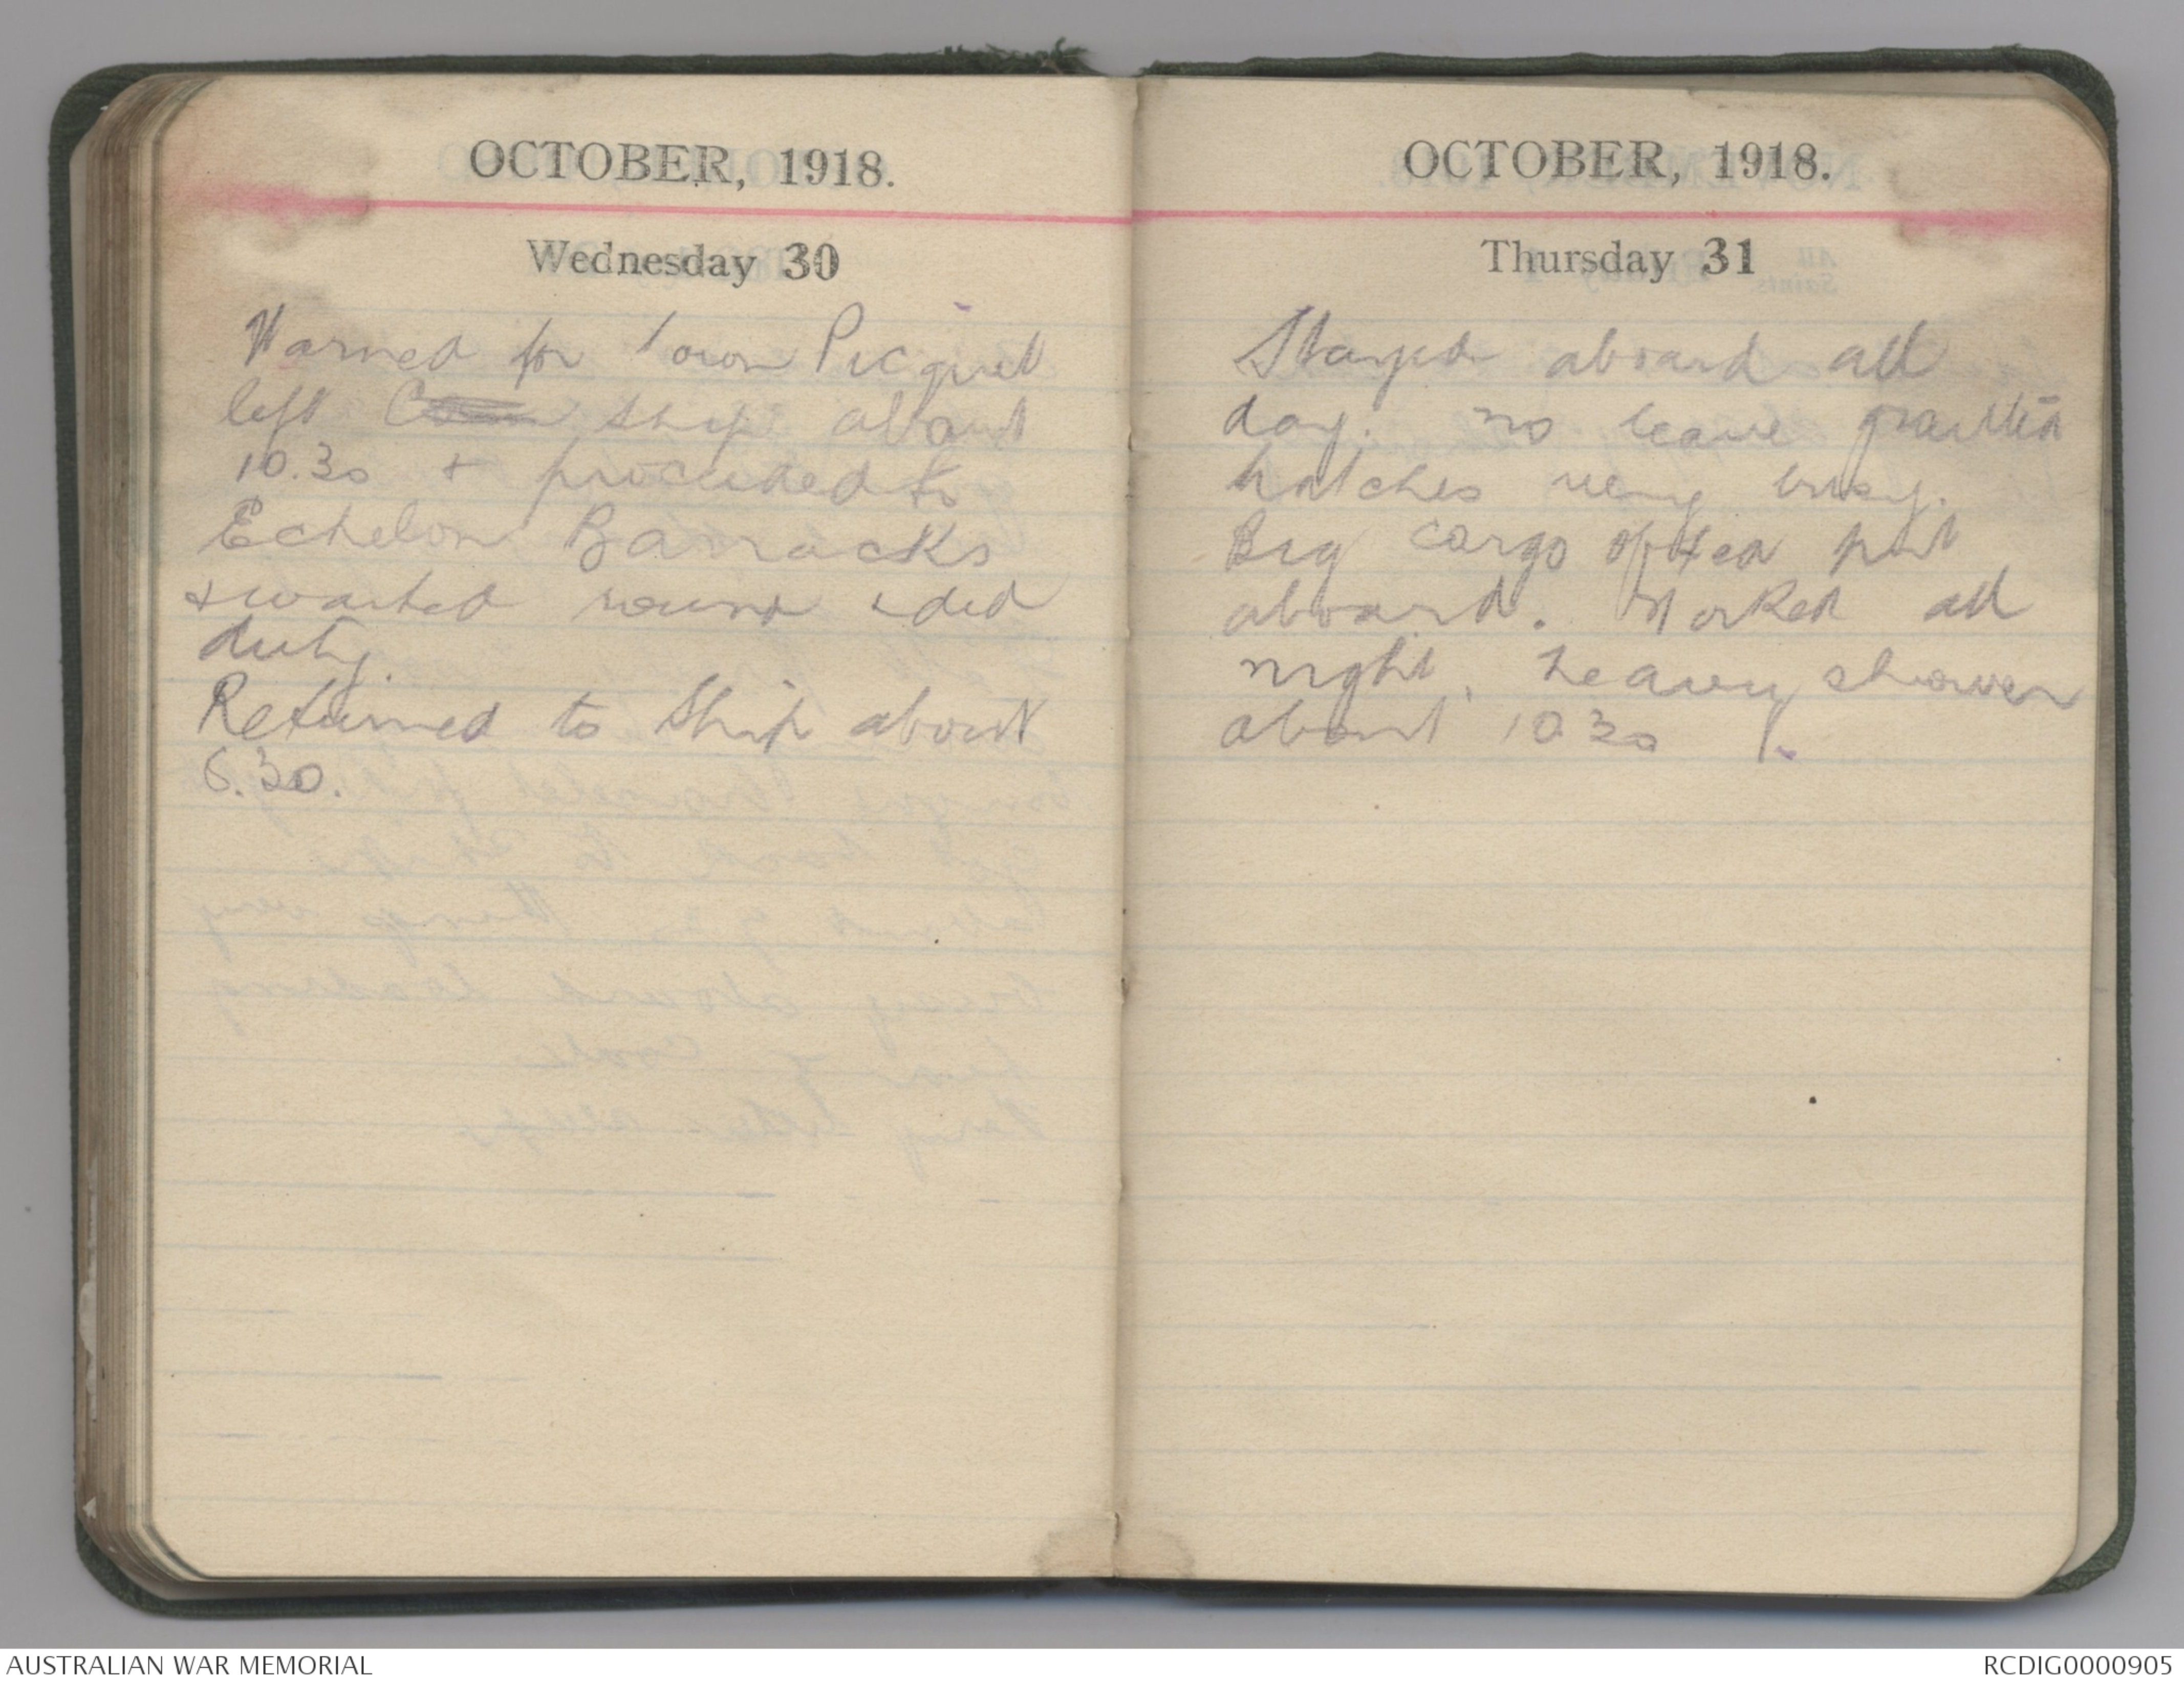 OCTOBER, 1918.
Wednesday 30
Warned for Town Picquet
left ship about
10.30 + proceeded to
Echelon Barracks
+ waited round + did
duty.
Returned to Ship about
6.30.
OCTOBER, 1918.
Thursday 31
Stayed aboard all
day. no leave granted
hatches very busy.
Big cargo of tea put
aboard. Worked all
night. heavy shower
about 10 30
AUSTRALIAN WAR MEMORIAL
RCDIG0000905